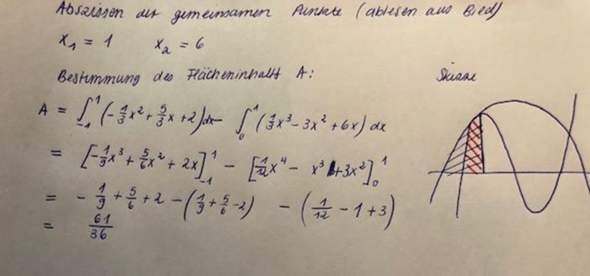 Abszissen der gemeinsamen Punkte (ablesen aus Bild)
x₁ = 1 x₂ = 6
Bestimmung des Flächeninhalt A: Skizze
A = ∫₋₁¹ (-1/3x² + 5/3x + 2) dx - ∫₀¹ (1/3x³ - 3x² + 6x) dx
= [-1/9x³ + 5/6x² + 2x]₋₁¹ - [1/12x⁴ - x³ + 3x²]₀¹
= - 1/9 + 5/6 + 2 - (1/9 + 5/6 - 2) - (1/12 - 1 + 3)
= 61/36